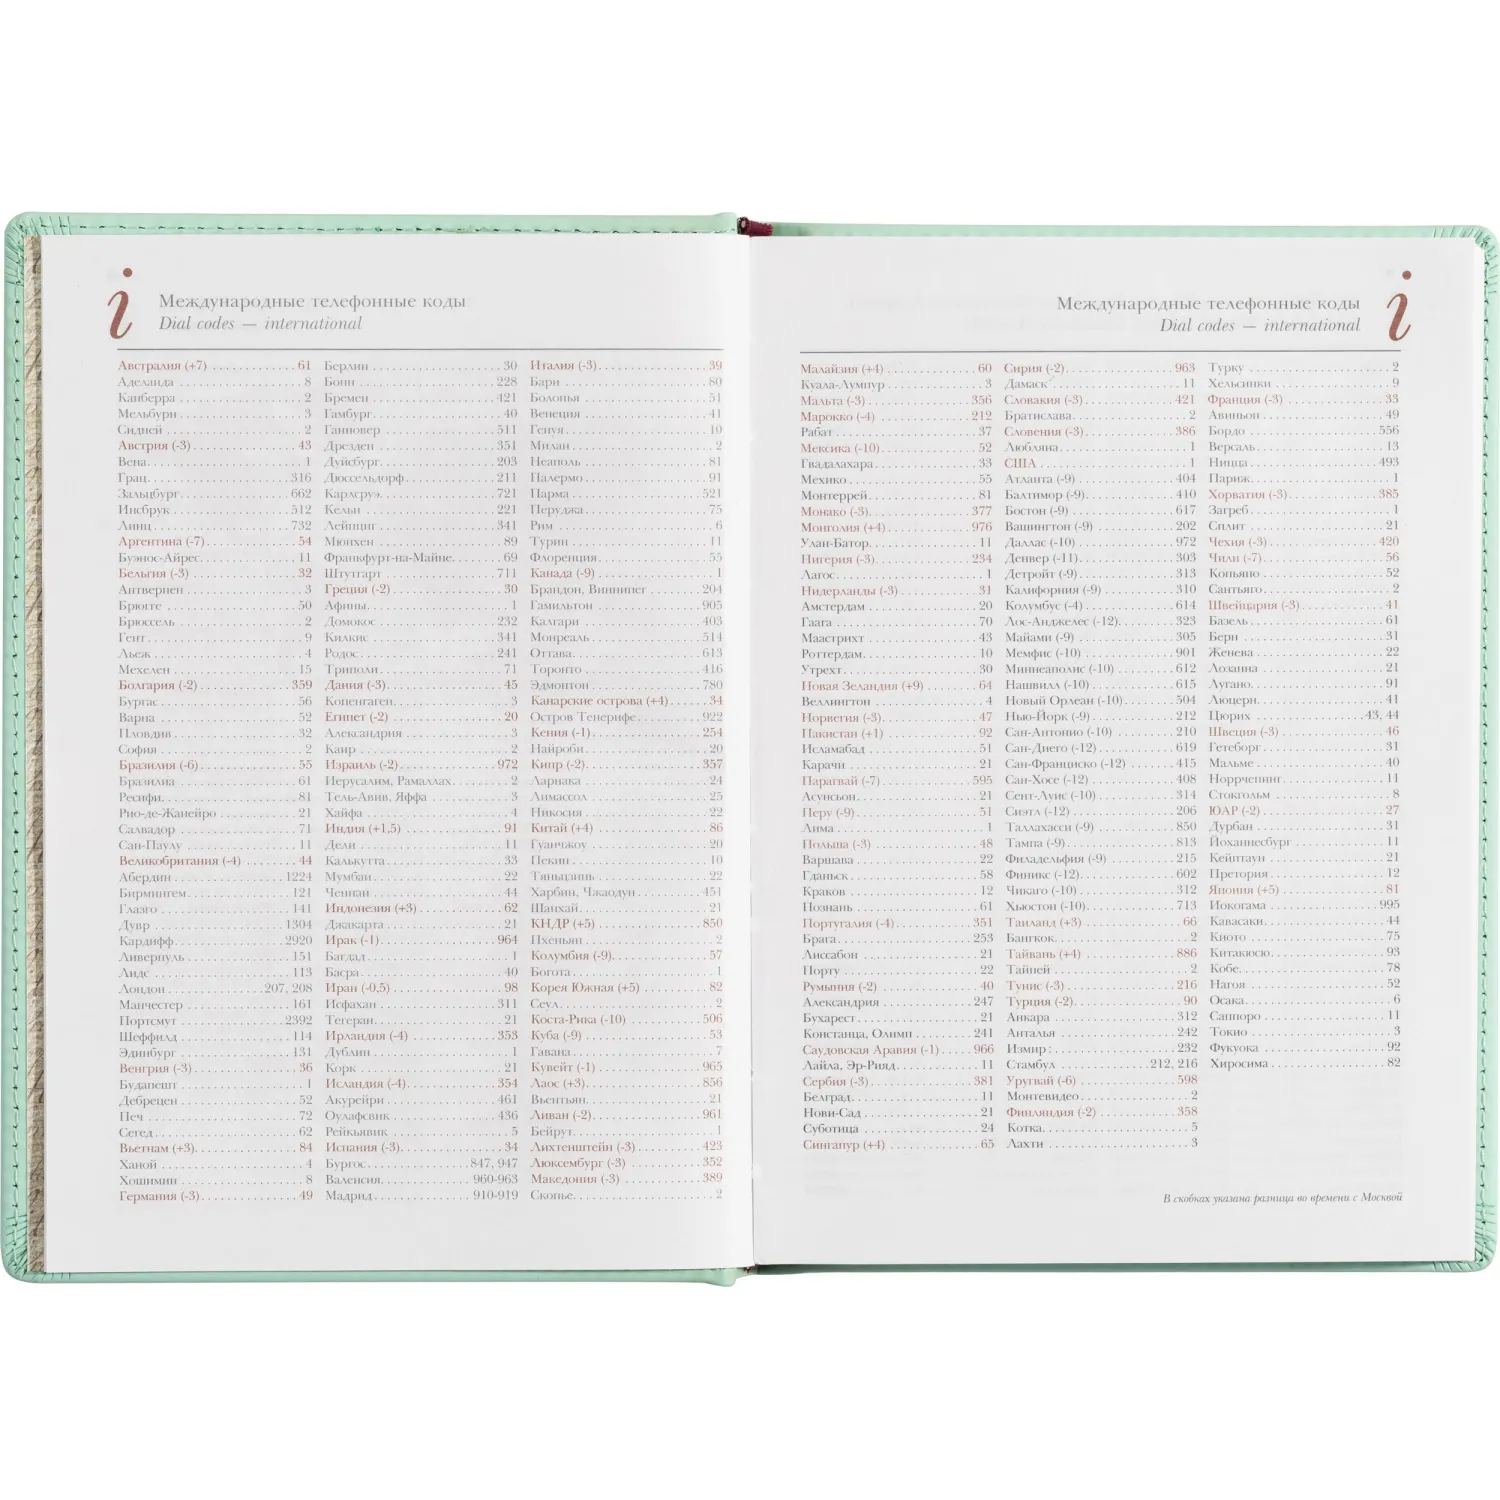 i
Международные телефонные коды
Dial codes — international
Австралия (+7) 61
Аделаида 8
Канберра 2
Мельбурн 3
Сидней 2
Австрия (-3) 43
Вена 1
Грац 316
Зальцбург 662
Инсбрук 512
Линц 732
Аргентина (-7) 54
Буэнос-Айрес 11
Бельгия (-3) 32
Антверпен 3
Брюгге 50
Брюссель 2
Гент 9
Льеж 4
Мехелен 15
Болгария (-2) 359
Бургас 56
Варна 52
Пловдив 32
София 2
Бразилия (-6) 55
Бразилиа 61
Ресифи 81
Рио-де-Жанейро 21
Салвадор 71
Сан-Паулу 11
Великобритания (-4) 44
Абердин 1224
Бирмингем 121
Глазго 141
Дувр 1304
Кардифф 2920
Ливерпуль 151
Лидс 113
Лондон 207, 208
Манчестер 161
Портсмут 2392
Шеффилд 114
Эдинбург 131
Венгрия (-3) 36
Будапешт 1
Дебрецен 52
Печ 72
Сегед 62
Вьетнам (+3) 84
Ханой 4
Хошимин 8
Германия (-3) 49
Берлин 30
Бонн 228
Бремен 421
Гамбург 40
Ганновер 511
Дрезден 351
Дуйсбург 203
Дюссельдорф 211
Карлсруэ 721
Кельн 221
Лейпциг 341
Мюнхен 89
Франкфурт-на-Майне 69
Штутгарт 711
Греция (-2) 30
Афины 1
Домокос 232
Килкис 341
Родос 241
Триполи 71
Дания (-3) 45
Копенгаген 3
Египет (-2) 20
Александрия 3
Каир 2
Израиль (-2) 972
Иерусалим, Рамаллах 2
Тель-Авив, Яффа 3
Хайфа 4
Индия (+1,5) 91
Дели 11
Калькутта 33
Мумбаи 22
Ченнаи 44
Индонезия (+3) 62
Джакарта 21
Ирак (-1) 964
Багдад 1
Басра 40
Иран (-0,5) 98
Исфахан 311
Тегеран 21
Ирландия (-4) 353
Дублин 1
Корк 21
Исландия (-4) 354
Акурейри 461
Оулафсвик 436
Рейкьявик 5
Испания (-3) 34
Бургос 847, 947
Валенсия 960-963
Мадрид 910-919
Италия (-3) 39
Бари 80
Болонья 51
Венеция 41
Генуя 10
Милан 2
Неаполь 81
Палермо 91
Парма 521
Перуджа 75
Рим 6
Турин 11
Флоренция 55
Канада (-9) 1
Брандон, Виннипег 204
Гамильтон 905
Калгари 403
Монреаль 514
Оттава 613
Торонто 416
Эдмонтон 780
Канарские острова (+4) 34
Остров Тенерифе 922
Кения (-1) 254
Найроби 20
Кипр (-2) 357
Ларнака 24
Лимассол 25
Никосия 22
Китай (+4) 86
Гуанчжоу 20
Пекин 10
Тяньцзинь 22
Харбин, Чжаодун 451
Шанхай 21
КНДР (+5) 850
Пхеньян 2
Колумбия (-9) 57
Богота 1
Корея Южная (+5) 82
Сеул 2
Коста-Рика (-10) 506
Куба (-9) 53
Гавана 7
Кувейт (-1) 965
Лаос (+3) 856
Вьентьян 21
Ливан (-2) 961
Бейрут 1
Лихтенштейн (-3) 423
Люксембург (-3) 352
Македония (-3) 389
Скопье 2
Международные телефонные коды
Dial codes — international
i
Малайзия (+4) 60
Куала-Лумпур 3
Мальта (-3) 356
Марокко (-4) 212
Рабат 37
Мексика (-10) 52
Гвадалахара 33
Мехико 55
Монтеррей 81
Монако (-3) 377
Монголия (+4) 976
Улан-Батор 11
Нигерия (-3) 234
Лагос 1
Нидерланды (-3) 31
Амстердам 20
Гаага 70
Маастрихт 43
Роттердам 10
Утрехт 30
Новая Зеландия (+9) 64
Веллингтон 4
Норвегия (-3) 47
Пакистан (+1) 92
Исламабад 51
Карачи 21
Парагвай (-7) 595
Асунсьон 21
Перу (-9) 51
Лима 1
Польша (-3) 48
Варшава 22
Гданьск 58
Краков 12
Познань 61
Португалия (-4) 351
Брага 253
Лиссабон 21
Порту 22
Румыния (-2) 40
Александрия 247
Бухарест 21
Констанца, Олимп 241
Саудовская Аравия (-1) 966
Лайла, Эр-Рияд 11
Сербия (-3) 381
Белград 11
Нови-Сад 21
Суботица 24
Сингапур (+4) 65
Сирия (-2) 963
Дамаск 11
Словакия (-3) 421
Братислава 2
Словения (-3) 386
Любляна 1
США 1
Атланта (-9) 404
Балтимор (-9) 410
Бостон (-9) 617
Вашингтон (-9) 202
Даллас (-10) 972
Денвер (-11) 303
Детройт (-9) 313
Калифорния (-9) 310
Колумбус (-4) 614
Лос-Анджелес (-12) 323
Майами (-9) 305
Мемфис (-10) 901
Миннеаполис (-10) 612
Нашвилл (-10) 615
Новый Орлеан (-10) 504
Нью-Йорк (-9) 212
Сан-Антонио (-10) 210
Сан-Диего (-12) 619
Сан-Франциско (-12) 415
Сан-Хосе (-12) 408
Сент-Луис (-10) 314
Сиэтл (-12) 206
Таллахасси (-9) 850
Тампа (-9) 813
Филадельфия (-9) 215
Финикс (-12) 602
Чикаго (-10) 312
Хьюстон (-10) 713
Таиланд (+3) 66
Бангкок 2
Тайвань (+4) 886
Тайпей 2
Тунис (-3) 216
Турция (-2) 90
Анкара 312
Анталья 242
Измир 232
Стамбул 212, 216
Уругвай (-6) 598
Монтевидео 2
Финляндия (-2) 358
Котка 5
Лахти 3
Турку 2
Хельсинки 9
Франция (-3) 33
Авиньон 49
Бордо 556
Версаль 13
Ницца 493
Париж 1
Хорватия (-3) 385
Загреб 1
Сплит 21
Чехия (-3) 420
Чили (-7) 56
Копьяпо 52
Сантьяго 2
Швейцария (-3) 41
Базель 61
Берн 31
Женева 22
Лозанна 21
Лугано 91
Люцерн 41
Цюрих 43, 44
Швеция (-3) 46
Гетеборг 31
Мальме 40
Норрчепинг 11
Стокгольм 8
ЮАР (-2) 27
Дурбан 31
Йоханнесбург 11
Кейптаун 21
Претория 12
Япония (+5) 81
Иокогама 995
Кавасаки 44
Киото 75
Китакюсю 93
Кобе 78
Нагоя 52
Осака 6
Саппоро 11
Токио 3
Фукуока 92
Хиросима 82
В скобках указана разница во времени с Москвой